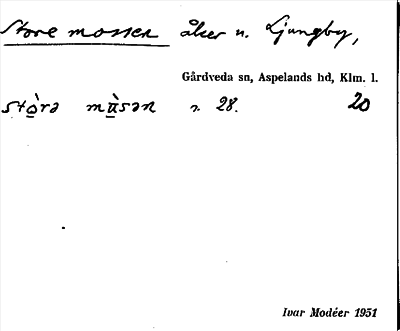 Store mossen åker n. Ljungby,
Gårdveda sn, Aspelands hd, Klm. l.
stò̲rə mù̲sən n. 28. 20
Ivar Modéer 1951